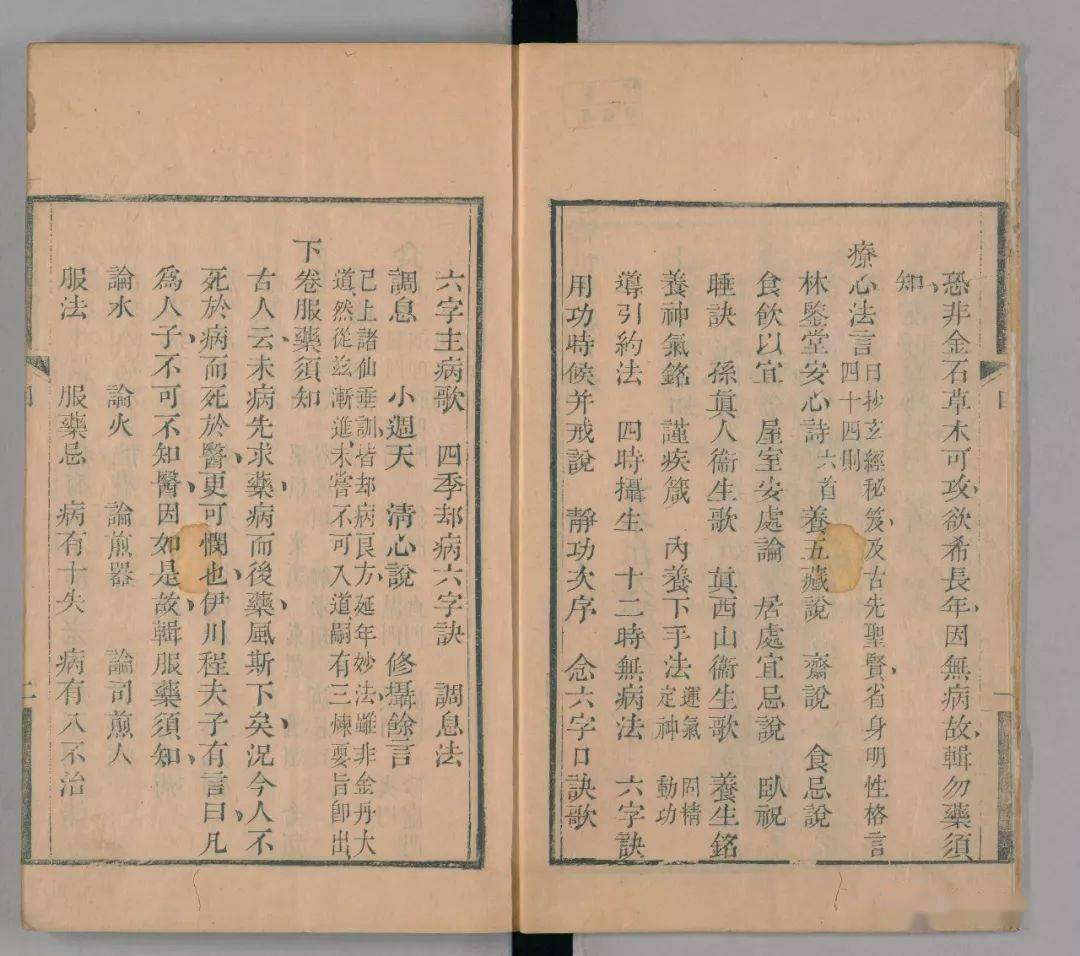 恐非金石草木可攻欲希長年因無病故輯勿藥須
知
療心法言 日抄玄經秘笈及古先聖賢省身明性格言
四十四則
林鑒堂安心詩 六首 養五藏說 齋說 食忌說
食飲以宜 屋室安處論 居處宜忌說 臥祝
睡訣 孫眞人衞生歌 眞西山衞生歌 養生銘
養神氣銘 謹疾箴 內養下手法 運氣 固精
定神 動功
導引約法 四時攝生 十二時無病法 六字訣
用功時候并戒說 靜功次序 念六字口訣歌
六字主病歌 四季却病六字訣 調息法
調息 小週天 清心說 修攝餘言
已上諸仙垂訓皆却病良方延年妙法雖非金丹大
道然從兹漸進未嘗不可入道嗣有三煉要旨卽出
下卷服藥須知
古人云未病先求藥病而後藥風斯下矣況今人不
死於病而死於醫更可憫也伊川程夫子有言曰凡
爲人子不可不知醫因如是故輯服藥須知
論水 論火 論煎器 論司煎人
服法 服藥忌 病有十失 病有八不治